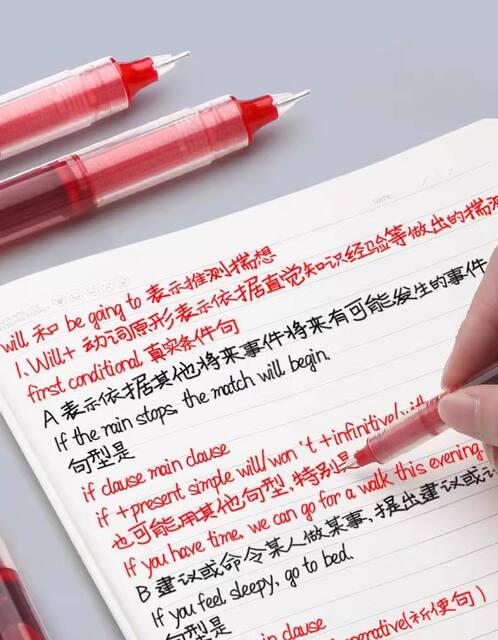 DATE
will 和 be going to 表示推测揣想
1. Will+ 动词原形表示依据直觉知识经验等做出的揣测
first conditional 真实条件句
A 表示依据其他将来事件将来有可能发生的事件
If the rain stops, the match will begin.
句型是
if clause main clause
if +present simple will/won't +infinitive/
也可能用其他句型,特别是
If you have time, we can go for a walk this evening
B 建议或命令某人做某事,提出建议或
If you feel sleepy, go to bed.
句型是
if clause main clause
(祈使句)